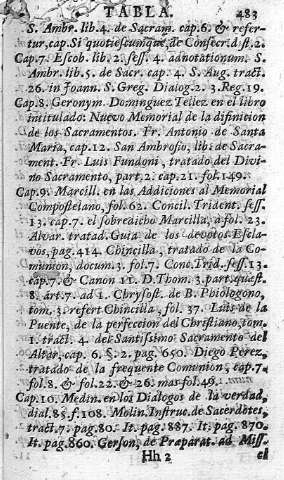 TABLA. 483
S. Ambr. lib. 4. de Sacram. cap. 6. & refer-
tur, cap. Si quotiescunque, de Consecr. dist. 2.
Cap. 7. Escob. lib. 2. sess. 4. adnotationum. S.
Ambr. lib. 5. de Sacr. cap. 4. S. Aug. tract.
26. in Joann. S. Greg. Dialog. 2. 3. Reg. 19.
Cap. 8. Geronym. Dominguez Tellez en el libro
intitulado: Nuevo Memorial de la difinicion
de los Sacramentos. Fr. Antonio de Santa
Maria, cap. 12. San Ambrosio, lib. de Sacra-
ment. Fr. Luis Fundoni, tratado del Divi-
no Sacramento, part. 2. cap. 21. fol. 149.
Cap. 9. Marcill. en las Addiciones al Memorial
Compostelano, fol. 62. Concil. Trident. sess.
13. cap. 7. el sobredicho Marcilla, a fol. 23.
Alvar. tratad. Guia de los devotos Escla-
vos, pag. 414. Chincilla, tratado de la Co-
munion, docum. 3. fol. 7. Conc. Trid. sess. 13.
cap. 7. & Canon 11. D. Thom. 3. part. quæst.
8. art. 7. ad 1. Chrysost. de B. Philogono,
tom. 3. refert Chincilla, fol. 37. Luis de la
Puente, de la perfeccion del Christiano, tom.
1. tract. 4. del Santissimo Sacramento del
Altar, cap. 6. §. 2. pag. 650. Diego Perez,
tratado de la frequente Comunion, cap. 7.
fol. 8. & fol. 22. & 26. mas fol. 49.
Cap. 10. Medin. en los Dialogos de la verdad,
dial. 85. f. 108. Molin. Instruc. de Sacerdotes,
tract. 7. pag. 80. It. pag. 866. It. pag. 870.
It. pag. 860. Gerson, de Præparat. ad Miss.
Hh 2 el